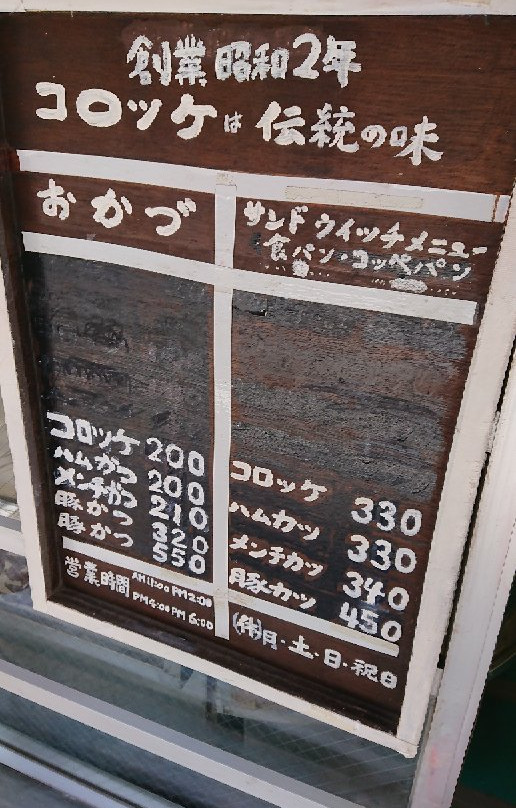 創業昭和2年
コロッケは伝統の味
おかづ
コロッケ 200
ハムかつ 200
メンチかつ 210
豚かつ 320
豚かつ 550
営業時間 AM11:00 PM2:00
PM4:00 PM6:00
サンドウイッチメニュー
食パン・コッペパン
コロッケ 330
ハムカツ 330
メンチカツ 340
豚カツ 450
㈹月・土・日・祝日